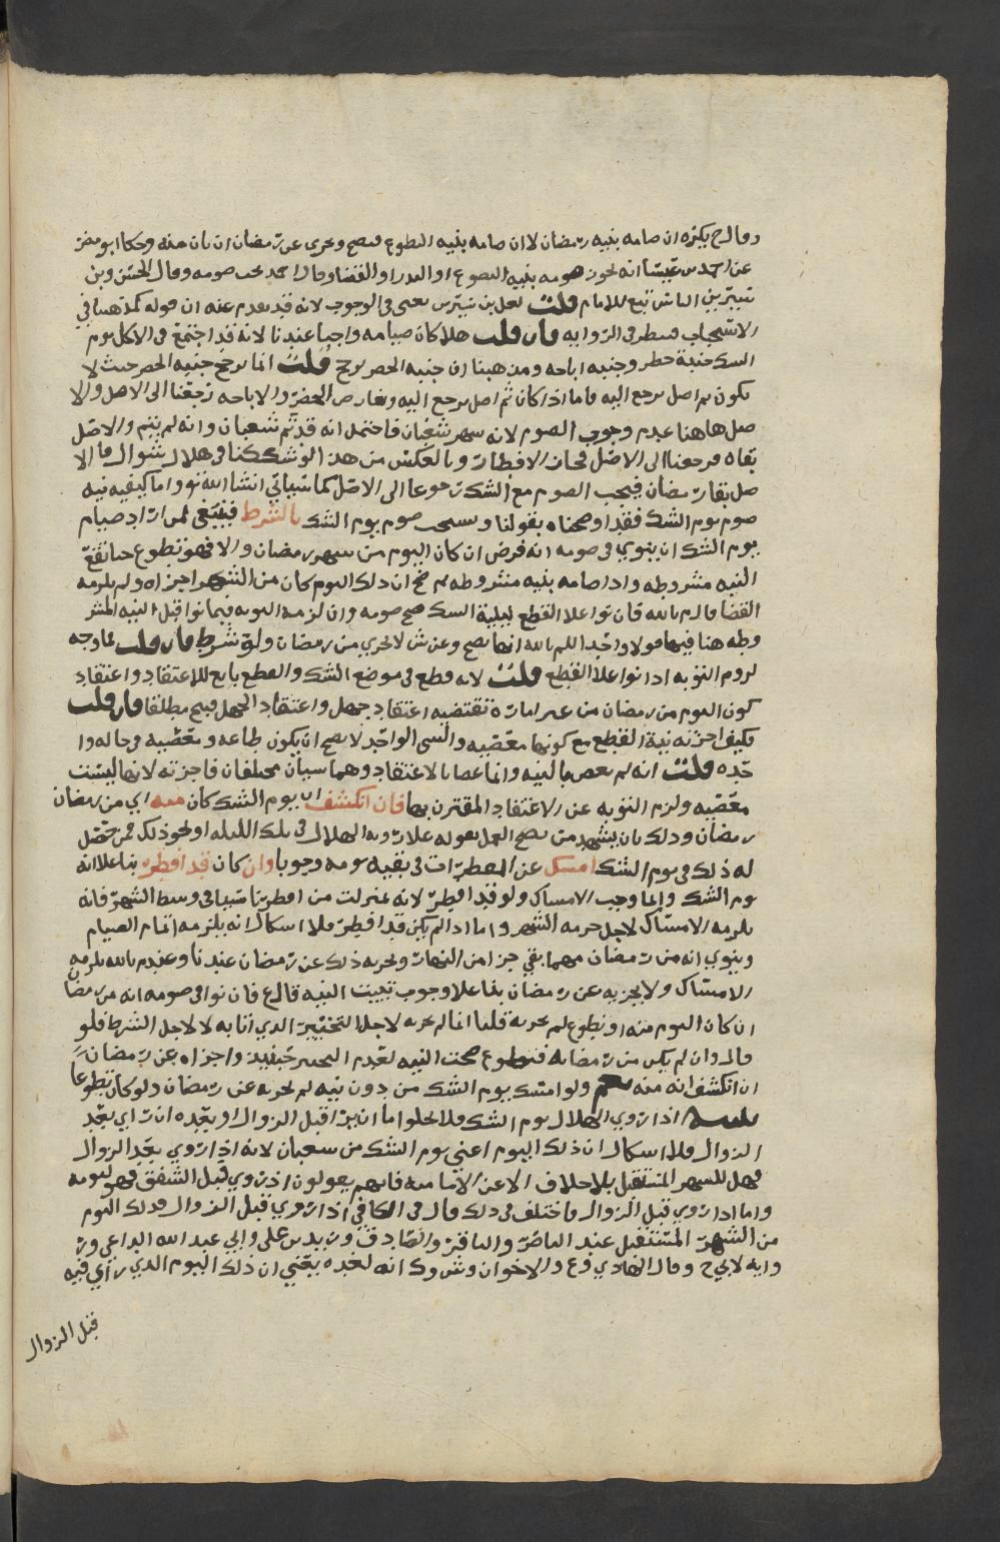 وقال ح يكره ان صامه بنيه رمضان لا ان صامه بنيه التطوع فيصح ويجزي عن رمضان ان بان منه وحكا ابو مضر
عن احمد بن عيسا انه يجوز صومه بنيه التطوع او النذر او القضا وقال احمد يجب صومه وقال الحسن وبن
سيرين الناس تبع للامام قلت لعل بن سيرين يعني في الوجوب لانه قد تقدم عنه ان قوله كمذهبنا في
الاستحباب فينظر في الروايه فان قلت هلا كان صيامه واجبا عندنا لانه قد اجتمع في الاكل يوم
الشك جنبة حظر وجنبه اباحه ومذهبنا ان جنبه الحصر ترجح قلت انما ترجح جنبيه الحصر حيث لا
يكون ثم اصل يرجع اليه فاما اذا كان ثم اصل يرجع اليه وتعارض الحضر والاباحه رجعنا الى الاصل والا
صل هاهنا عدم وجوب الصوم لانه شهر شعبان فاحتمل انه قد تم شعبان وانه لم يتم والاصل
بقاه فرجعنا الى الاصل فجاز الافطار وبالعكس من هذا لو شككنا في هلال شوال فالا
صل بقا رمضان فيجب الصوم مع الشك رجوعا الى الاصل كما سياتي انشا الله تع واما كيفيه نيه
صوم يوم الشك فقد اوضحناه بقولنا ويستحب صوم يوم الشك بالشرط فينبغي لمن اراد صيام
يوم الشك ان ينوي في صومه انه فرض ان كان اليوم من شهر رمضان والا فهو تطوع حتا تقع
النيه مشروطه واذا صامه بنيه مشروطه ثم صح ان ذلك اليوم كان من الشهر اجزاه ولم يلزمه
القضا قال م بالله فان نوا علا القطع لبلية الشك صح صومه وان لزمه التوبه فيما نوا قبل النيه المشر
وطه هنا فيها قولا واحدا للم بالله انها تصح وعن ش لا تجزي من رمضان ولو شرط فان قلت فما وجه
لزوم التوبه اذا نوا علا القطع قلت لانه قطع في موضع الشك والقطع تابع للاعتقاد واعتقاد
كون اليوم من رمضان من غير اماره تقتضيه اعتقاد جهل واعتقاد الجهل قبيح مطلقا فان قلت
فكيف اجزته نية القطع مع كونها معصيه والشي الواحد لا يصح ان يكون طاعه ومعصيه في حاله وا
حده قلت انه لم يعص بالنيه وانما عصا بالاعتقاد وهما شيان مختلفان فاجزته لانها ليست
معصيه ولزم التوبه عن الاعتقاد المقترن بها فان انكشف ان يوم الشك كان منه اي من رمضان
رمضان وذلك بان يشهد من يصح العمل بقوله علا رويه الهلال في تلك الليله او نحو ذلك فمن حصل
له ذلك في يوم الشك امسك عن المفطرات في بقيه يومه وجوبا وان كان قد افطر بنا علا انه
يوم الشك وانما وجب الامساك ولو قد افطر لانه بمنزلت من افطر ناسيا في وسط الشهر فانه
يلزمه الامساك لاجل حرمه الشهر واما اذا لم يكن قد افطر فلا اشكال انه يلزمه اتمام الصيام
وينوي انه من رمضان مهما بقي جزا من النهار ويجزيه ذلك عن رمضان عندنا وعند م بالله يلزمه
الامساك ولا يجزيه عن رمضان بنا علا وجوب تبييت النيه قال ع فان نوا في صومه انه من رمضان
ان كان اليوم منه او تطوع لم يجزيه قلنا انما لم يجزيه لاجل التخيير الذي اتا به لا لاجل الشرط فلو
قال وان لم يكن من رمضانه فتطوع صحت النيه لعدم التخيير حينئذ واجزاه عن رمضان
ان انكشف انه منه نعم ولو امسك يوم الشك من دون نيه لم يجزيه عن رمضان ولو كان تطوعا
تنبيه اذا روي الهلال يوم الشك فلا يخلوا اما ان يرا قبل الزوال او بعده ان راي بعد
الزوال فلا اشكال ان ذلك اليوم اعني يوم الشك من شعبان لانه اذا روي بعد الزوال
فهل للشهر المستقبل بلا خلاف الا عن الاماميه فانهم يقولون اذا روي قبل الشفق فهو ليومه
واما اذا روي قبل الزوال فاختلف في ذلك قال في الكافي اذا روي قبل الزوال فذلك اليوم
من الشهر المستقبل عند الناصر والباقر والصادق وزيد بن علي وابي عبد الله الداعي ور
وايه لابي ح وقال الهادي وع والاخوان وش وك انه لغده يعني ان ذلك اليوم الذي راي فيه
قبل الزوال